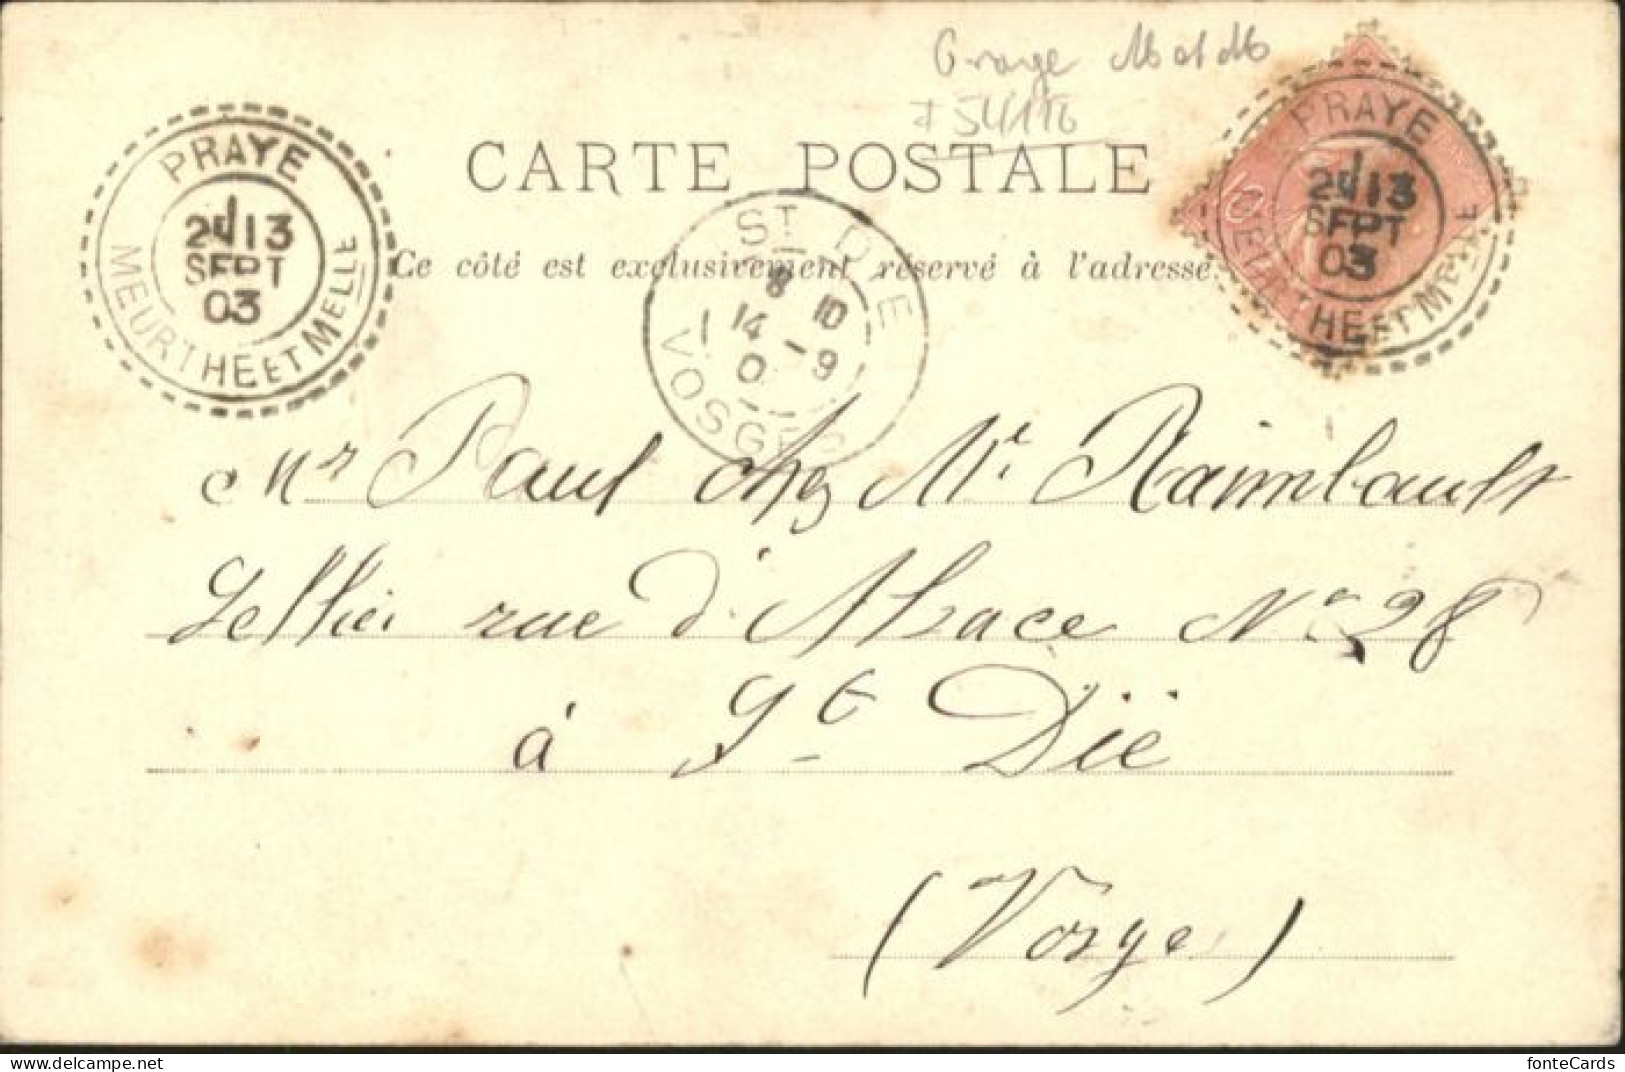 M et M
54116
CARTE POSTALE
Ce côté est exclusivement réservé à l'adresse.
PRAYE
2E 13
SEPT
03
MEURTHE ET MELLE
ST DIE
8 10
14 - 9
0
VOSGES
PRAYE
2E 13
SEPT
03
MEURTHE ET MELLE
10
Mr Paul chez Mr. Raimbault
Sellier rue d'Alsace No 28
à St Dié
(Vosges)
delcampe.net
fonteCards